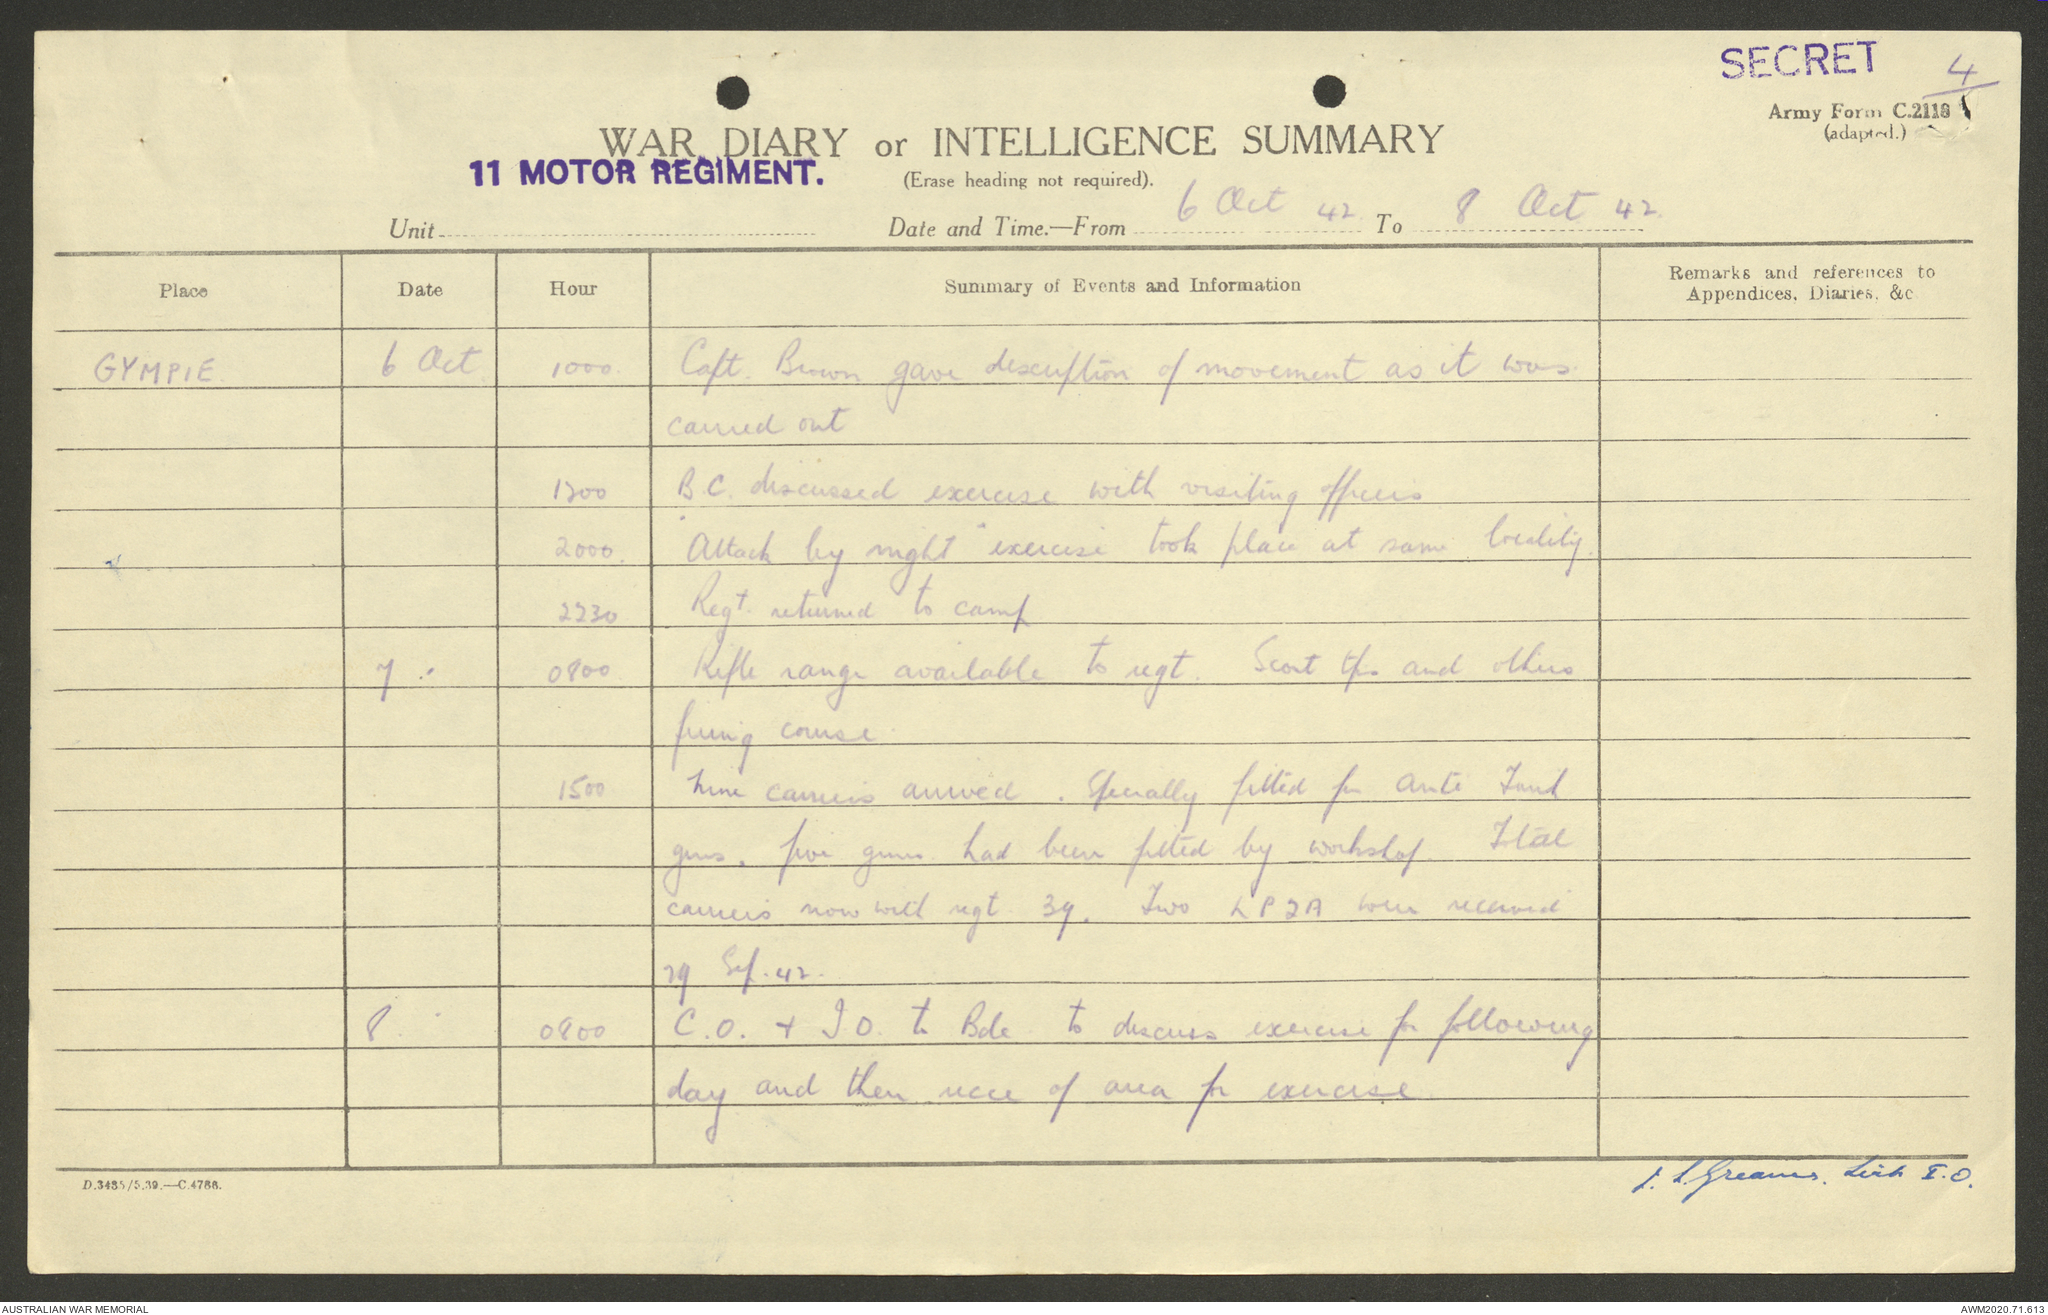 SECRET 4
Army Form C.2118
(adapted.)
WAR DIARY or INTELLIGENCE SUMMARY
11 MOTOR REGIMENT.
(Erase heading not required).
Unit Date and Time.—From 6 Oct 42 To 8 Oct 42.
Place Date Hour Summary of Events and Information Remarks and references to
Appendices, Diaries, &c
GYMPIE. 6 Oct 1000. Capt. Brown gave description of movement as it was
carried out
1200 B.C. discussed exercise with visiting officers
2000. "Attack by night" exercise took place at same locality.
2230 Regt. returned to camp
7 " 0800 Rifle range available to regt. Scout tps and others
firing course.
1500 Nine carriers arrived. Specially fitted for Anti Tank
guns, five guns had been fitted by workshop. Total
carriers now with regt. 39. Two LP2A were received
29 Sep. 42.
8 " 0800 C.O. + I O. to Bde to discuss exercise for following
day and then recce of area for exercise.
D.3485/5.39.—C.4788.
Greaves. Lieut I.O.
AUSTRALIAN WAR MEMORIAL AWM2020.71.613